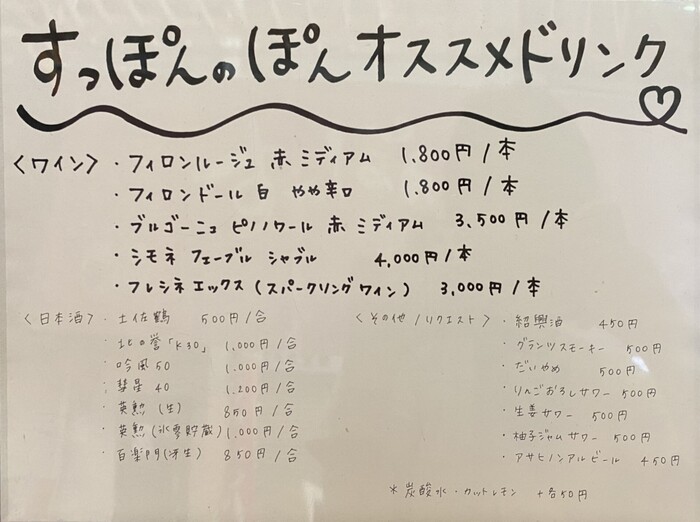 すっぽんのぽんオススメドリンク
〈ワイン〉 ・フィロンルージュ 赤 ミディアム 1,800円/本
・フィロンドール 白 やや辛口 1,800円/本
・ブルゴーニュ ピノノワール 赤 ミディアム 3,500円/本
・シモネ フェーブル シャブル 4,000円/本
・フレシネ エックス(スパークリングワイン) 3,000円/本
〈日本酒〉・土佐鶴 500円/合
・北の誉「K30」 1,000円/合
・吟風50 1,000円/合
・彗星40 1,200円/合
・英勲(生) 850円/合
・英勲(氷零貯蔵) 1,000円/合
・百楽門(冴生) 850円/合
〈その他/リクエスト〉・紹興酒 450円
・グランツスモーキー 500円
・だいやめ 500円
・りんごおろしサワー 500円
・生姜サワー 500円
・柚子ジャムサワー 500円
・アサヒノンアルビール 450円
*炭酸水・カットレモン +各50円